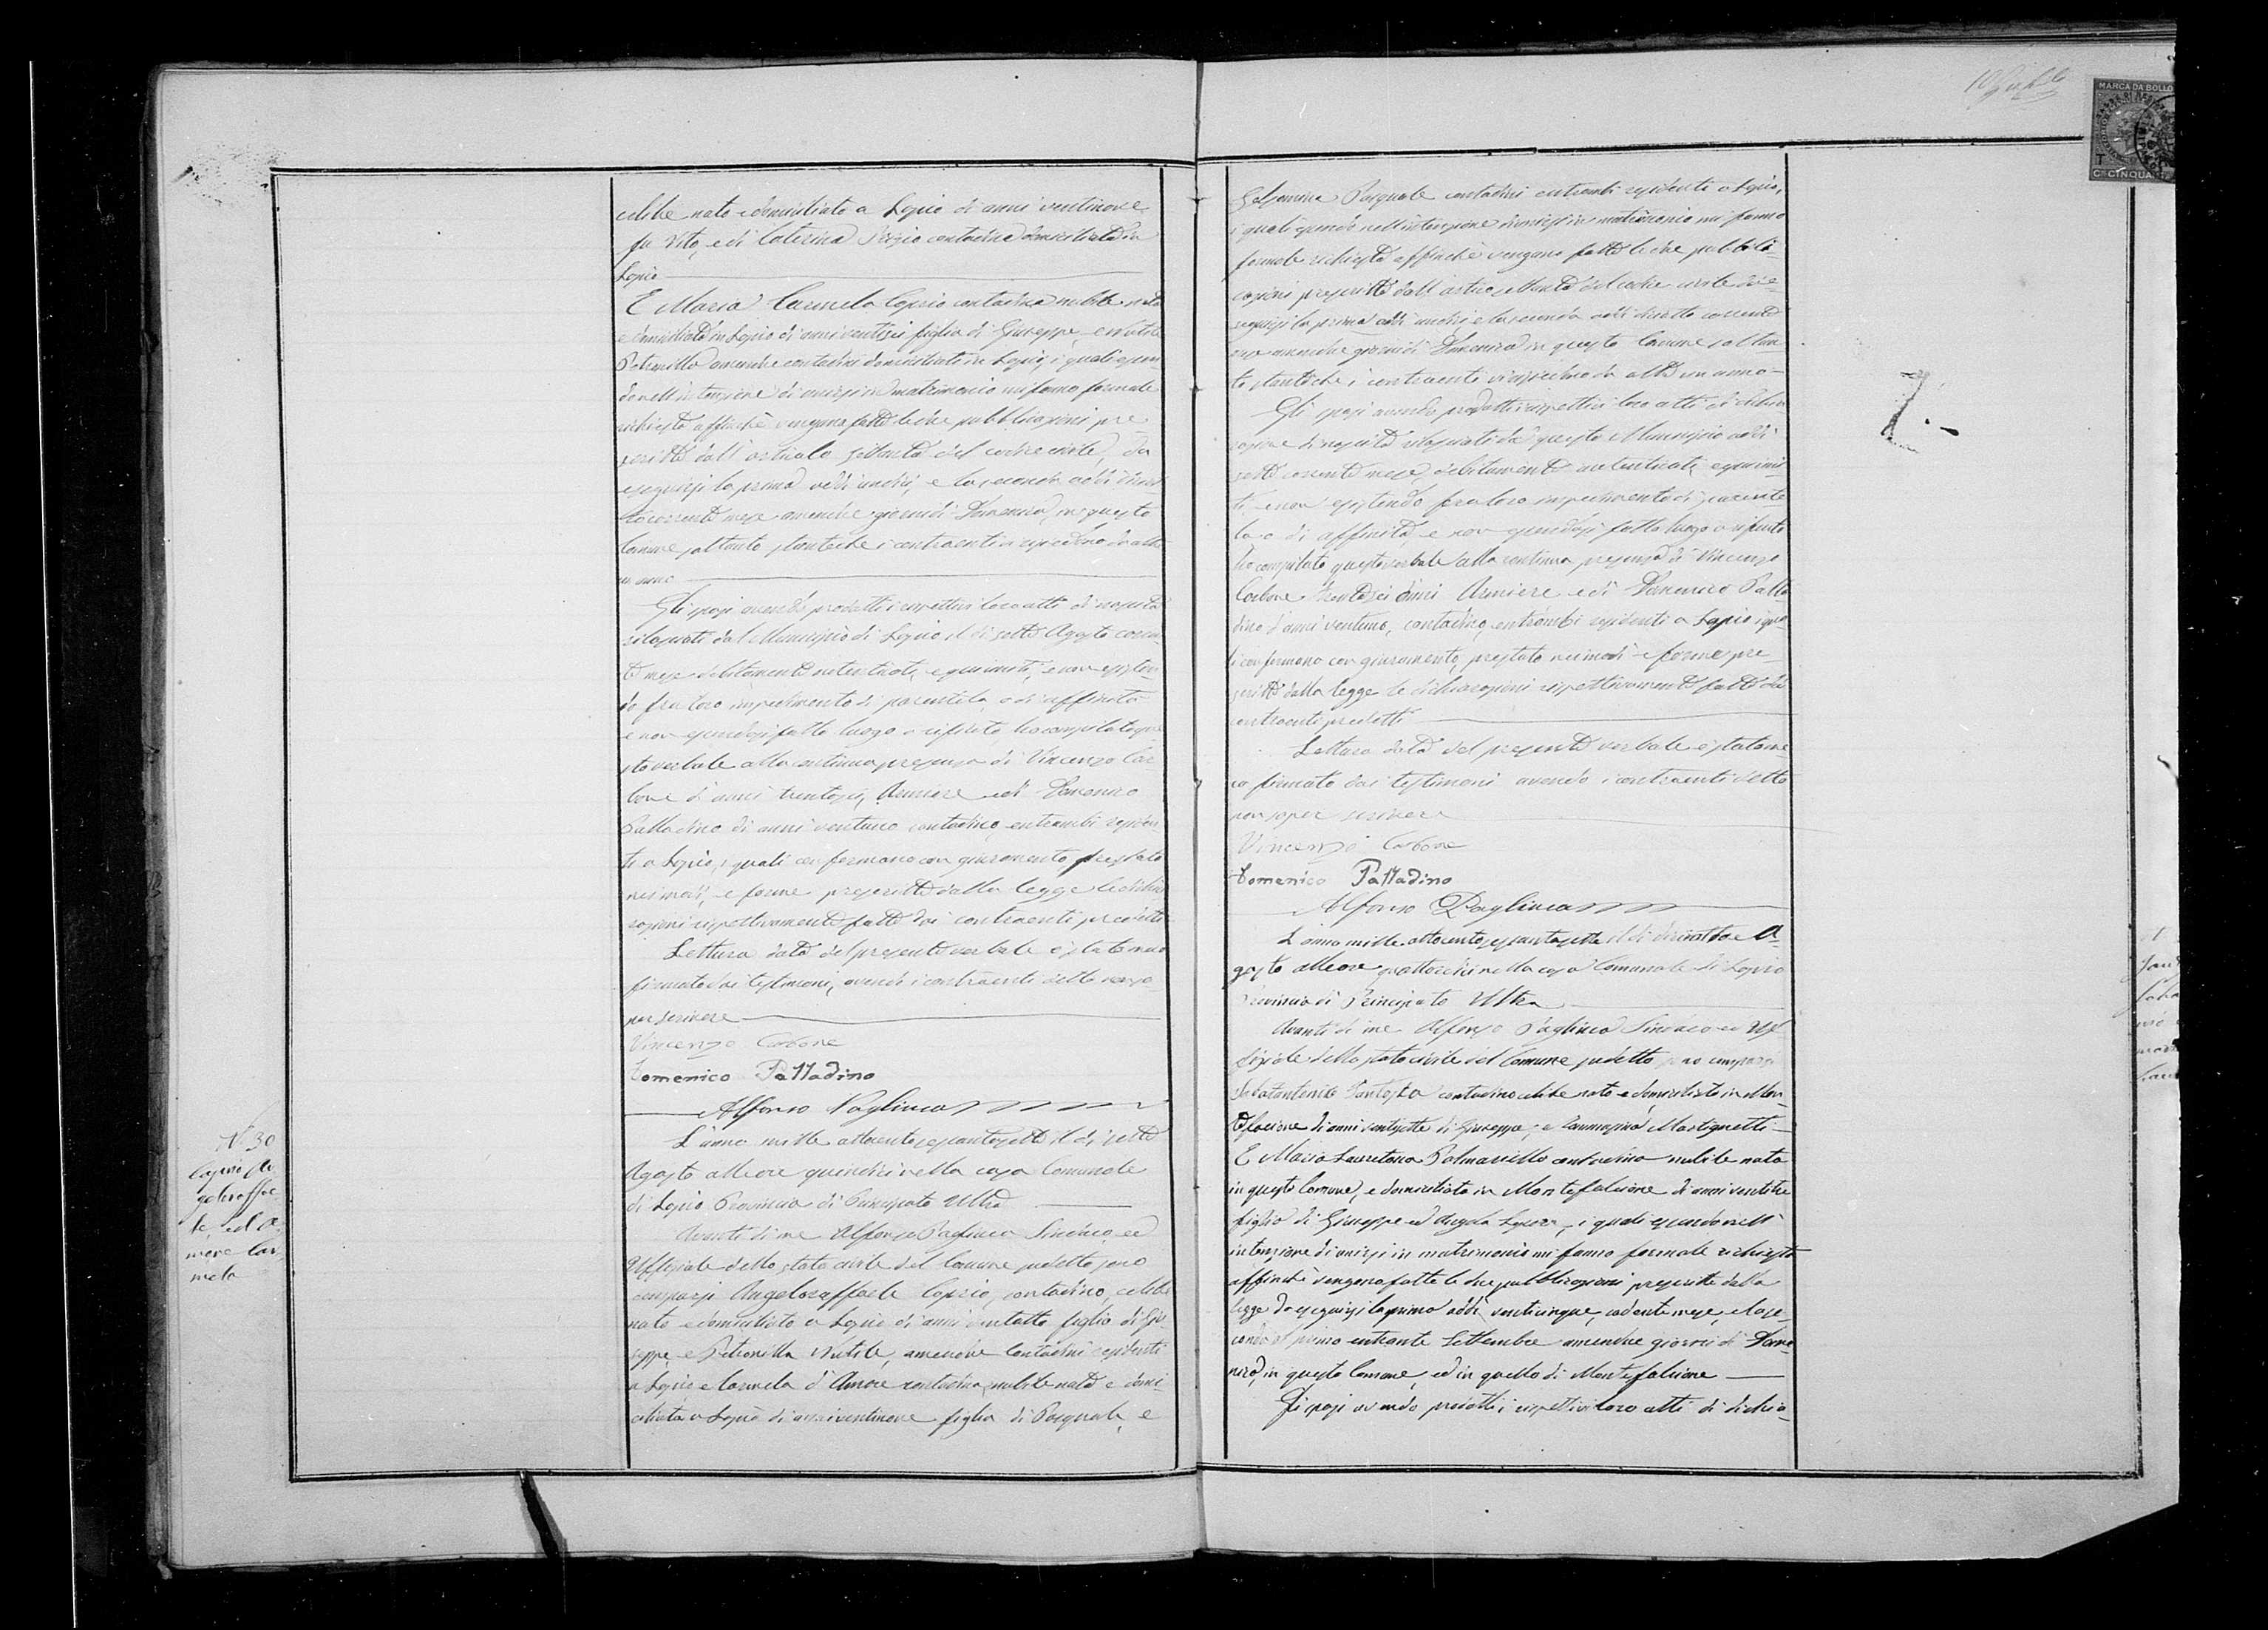 celibe nato e domiciliato a Lapio di anni ventinove
fu Vito, e di Caterina contadina domiciliata in
Lapio
E Maria Carmela Caprio contadina nubile nata
e domiciliata in Lapio di anni ventisei figlia di Giuseppe, e
Petronilla amendue contadini domiciliati in Lapio, i quali essen-
do nell'intenzione di unirsi in matrimonio mi fanno formale
richiesta affinchè vengano fatte le due pubblicazioni pre-
scritte dall'articolo settanta del codice civile, da
eseguirsi la prima addì undici, e la seconda addì diciot-
to corrente mese amendue giorni di Domenica, in questo
Comune soltanto stanteche i contraenti vi risiedono da oltre
un anno
Gli sposi avendo prodotti i rispettivi loro atti di nascita
rilasciati dal Municipio di Lapio il dì sette Agosto corren-
te mese debitamente autenticati, e quinditi, e non esisten-
do fra loro impedimento di parentela, o di affinità
e non essendosi fatto luogo a rifiuto, ho compilato que-
sto verbale alla continua presenza di Vincenzo Car-
bone di anni trentasei, Armiere ed di Domenico
Palladino di anni ventuno contadino, entrambi residen-
ti a Lapio, i quali confermano con giuramento prestato
nei modi, e forme prescritte dalla legge le dichia-
razioni rispettivamente fatte dai contraenti predetti
Lettura data del presente verbale è stato meco
firmato dai testimoni, avendo i contraenti detto non sa-
per scrivere
Vincenzo Carbone
Domenico Palladino
Alfonso Pagliuca
L'anno mille ottocentosessantasette il dì sette
Agosto alle ore quindici nella casa Comunale
di Lapio Provincia di Principato Ultra
Avanti di me Alfonso Pagliuca Sindaco, ed
Uffiziale dello stato civile del Comune sudetto sono
comparsi Angeloraffaele Caprio, contadino, celibe
nato e domiciliato a Lapio di anni ventotto figlio di Giu-
seppe, e Petronilla amendue Contadini residenti
a Lapio e Carmela d'Amore contadina, nubile nata e domi-
ciliata a Lapio di anni ventinove figlia di Pasquale, e
N. 30
Caprio An
geloraffae
le, ed A
more Car
mela
10
MARCA DA BOLLO
Pasquale contadini entrambi residenti a Lapio,
i quali essendo nell'intenzione di unirsi in matrimonio mi fanno
formale richiesta affinchè vengano fatte le due pubbli-
cazioni prescritte dall'articolo settanta del codice civile da e-
seguirsi la prima addì undici, e la seconda addì diciotto corrente
mese amendue giorni di Domenica in questo Comune soltan-
to stanteche i contraenti vi risiedono da oltre un anno
Gli sposi avendo prodotti i rispettivi loro atti di dichia-
razione di nascita rilasciati da questo Municipio addì
sette corrente mese, debitamente autenticati,
e non esistendo fra loro impedimento di parente-
la o di affinità, e non essendosi fatto luogo a rifiuto
ho compilato questo verbale alla continua presenza di Vincenzo
Carbone trentasei anni Armiere e di Domenico Palla-
dino d'anni ventuno, contadino, entrambi residenti a Lapio i qua-
li confermano con giuramento, prestato nei modi e forme pre-
scritte dalla legge le dichiarazioni rispettivamente fatte dai
contraenti predetti
Lettura data del presente verbale è stato me-
co firmato dai testimoni avendo i contraenti detto
non saper scrivere
Vincenzo Carbone
Domenico Palladino
Alfonso Pagliuca
L'anno mille ottocentosessantasette il dì diciotto A-
gosto alle ore quattordici nella casa Comunale di Lapio
Provincia di Principato Ultra
Avanti di me Alfonso Pagliuca Sindaco ed Uf-
fiziale dello stato civile del Comune sudetto sono comparsi
contadino celibe nato e domiciliato in Mon-
tefalcione di anni ventisette di Giuseppe, e Martignetti
E Maria Lauretana Palmariello contadina nubile nata
in questo Comune, e domiciliata in Montefalcione di anni ventitre
figlia di Giuseppe ed Angela, i quali essendo nell'
intenzione di unirsi in matrimonio mi fanno formale richiesta
affinchè vengano fatte le due pubblicazioni prescritte dalla
legge da eseguirsi la prima addì venticinque, cadente mese, e la se-
conda al primo entrante Settembre amendue giorni di Dome-
nica, in questo Comune, ed in quello di Montefalcione
Gli sposi avendo prodotti i rispettivi loro atti di dichia-